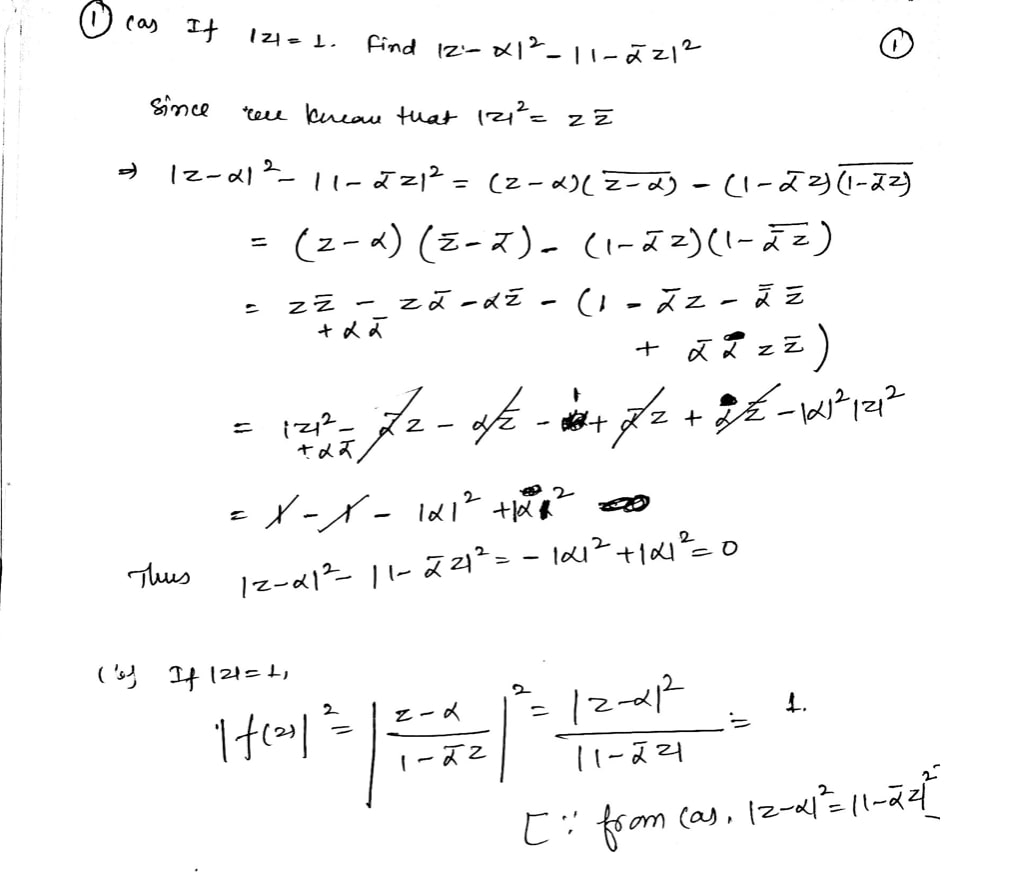 ① (a) If |z|=1. Find |z-α|²-|1-ᾱz|²
①
Since we know that |z|²= z z̅
⇒ |z-α|²- |1-ᾱz|² = (z-α)(\overline{z-α}) - (1-ᾱz)(\overline{1-ᾱz})
= (z-α) (z̅-ᾱ) - (1-ᾱz)(1-\overline{ᾱz})
= z z̅ - zᾱ -αz̅ - (1 - ᾱz - \bar{ᾱ} z̅
+ αᾱ
+ ᾱ \bar{ᾱ} z z̅)
= |z|²- ᾱz - αz̅ - 1 + ᾱz + αz̅ -|α|²|z|²
+αᾱ
= 1 - 1 - |α|² +|α|²
Thus |z-α|²- |1-ᾱz|² = - |α|² +|α|² = 0
(b) If |z|=1,
|f(z)|² = |(z-α)/(1-ᾱz)|² = |z-α|²/|1-ᾱz| = 1.
[∵ from (a), |z-α|²=|1-ᾱz|²